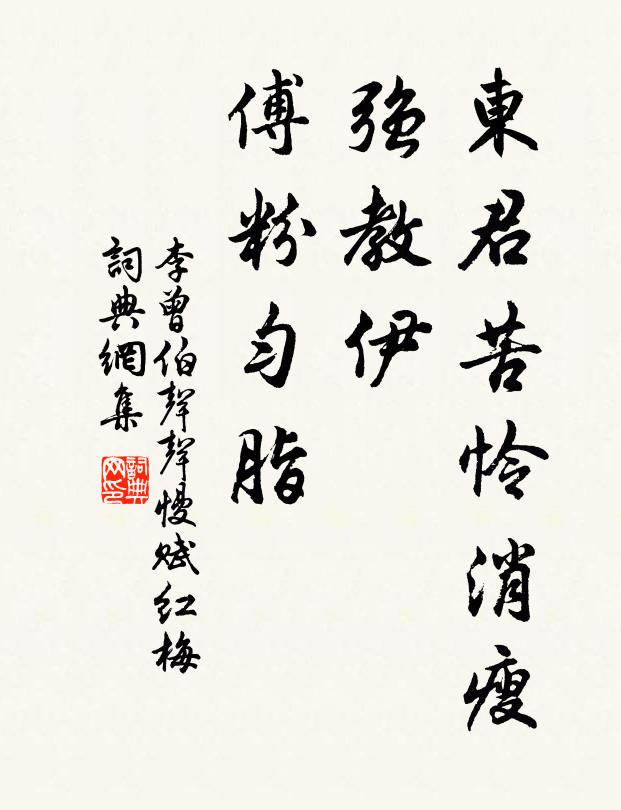 東君苦怜消瘦
強教伊
傅粉匀脂
李曾伯聲聲慢賦紅梅
詞典網集
詞典网印